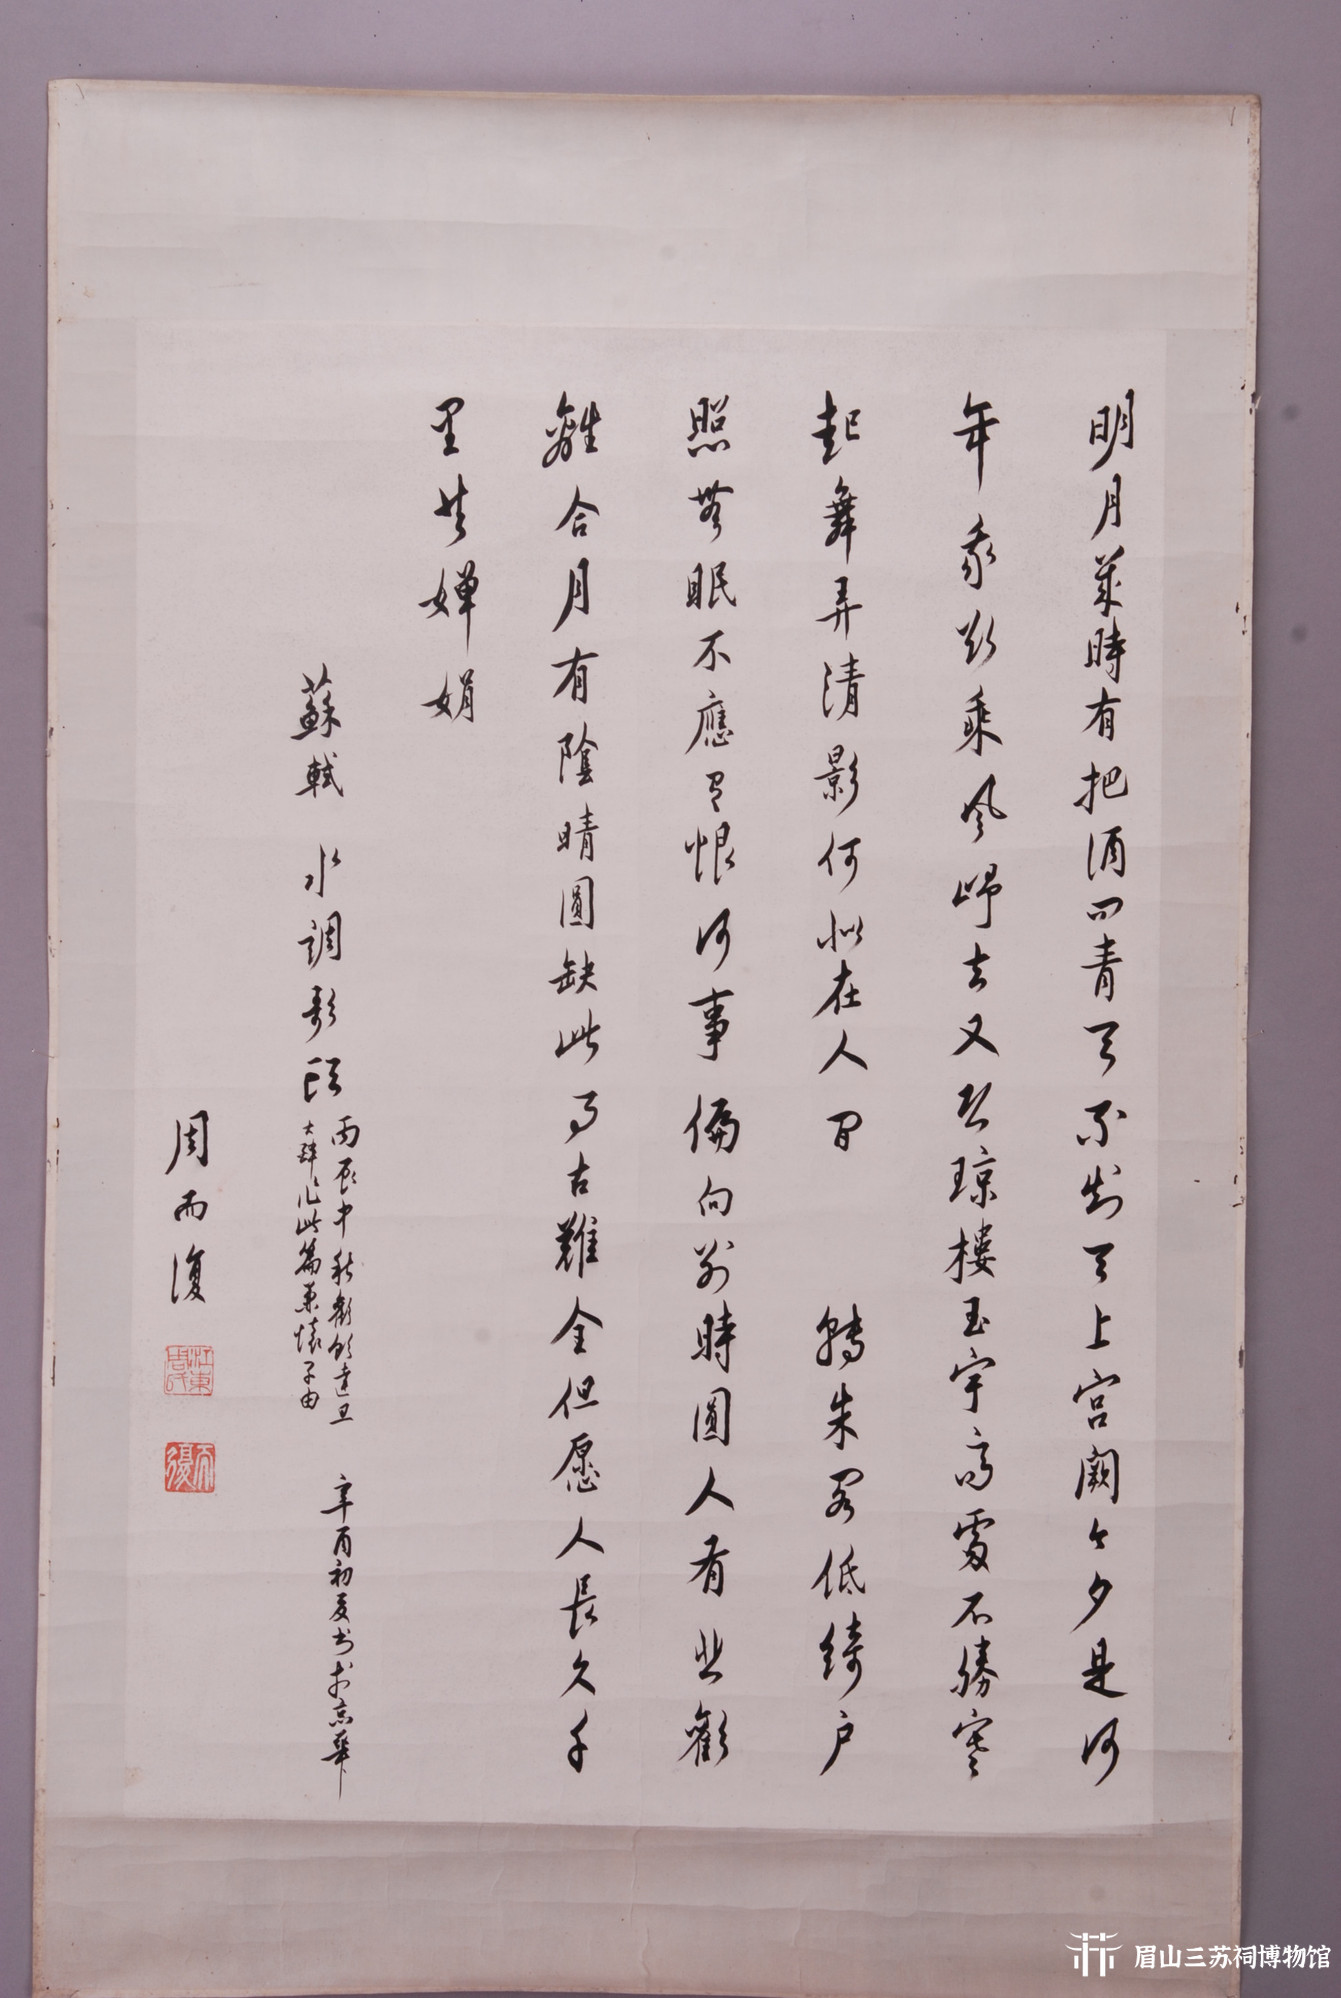 明月幾時有把酒问青天不知天上宫闕今夕是何
年我欲乘风歸去又恐瓊樓玉宇高處不勝寒
起舞弄清影何似在人間　轉朱閣低綺户
照無眠不應有恨何事偏向别時圓人有悲歡
離合月有陰晴圓缺此事古難全但愿人長久千
里共嬋娟
蘇軾　水調歌頭
丙辰中秋歡飲達旦
大醉作此篇兼懷子由
辛酉初夏书於京華
周而復
江東周氏
而復
眉山三苏祠博物馆